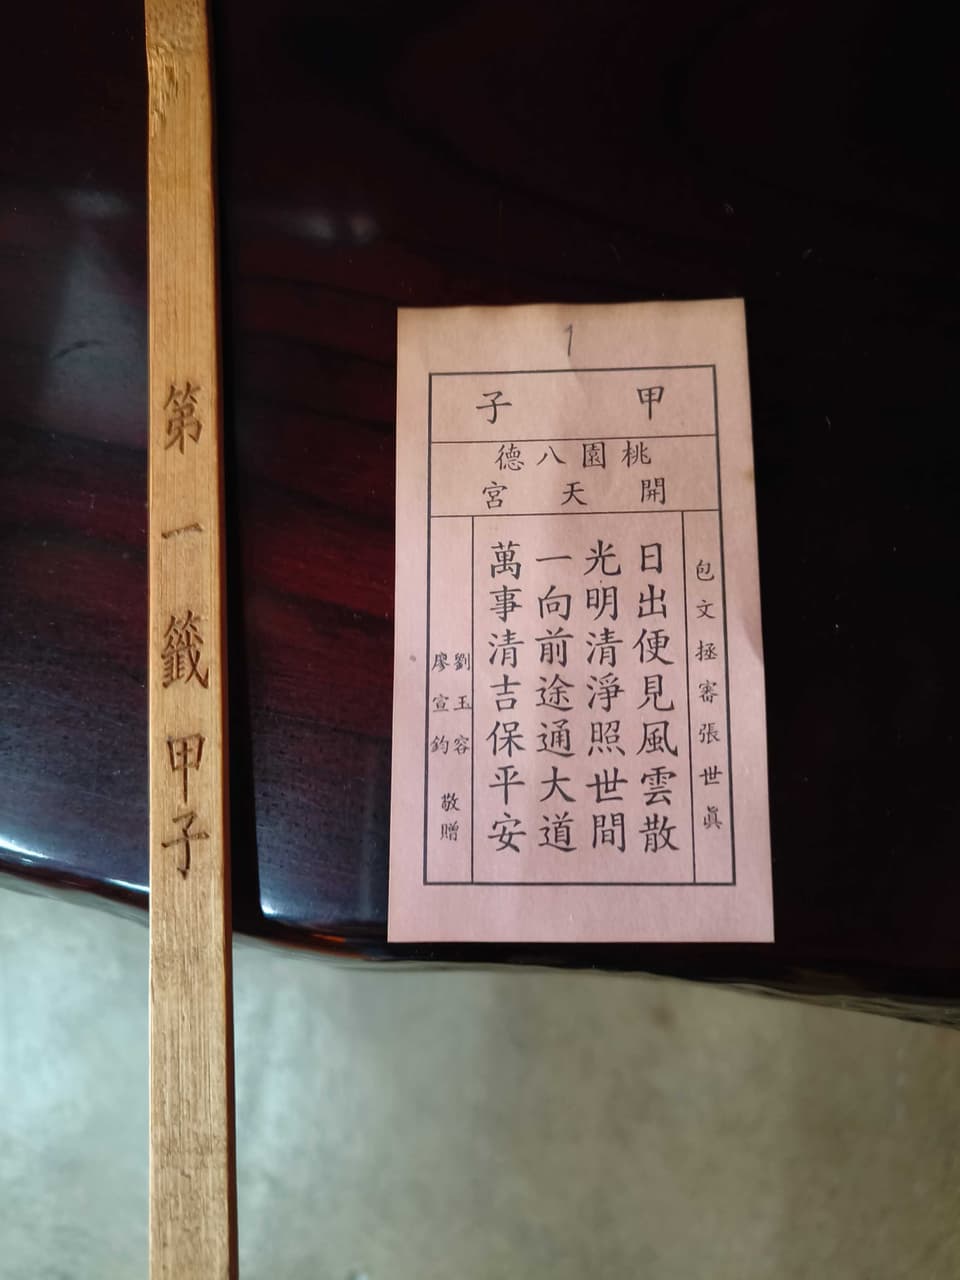 第一籤甲子
1
甲子
桃園八德
開天宮
包文拯審張世真
日出便見風雲散
光明清淨照世間
一向前途通大道
萬事清吉保平安
劉玉容
廖宣鈞
敬贈